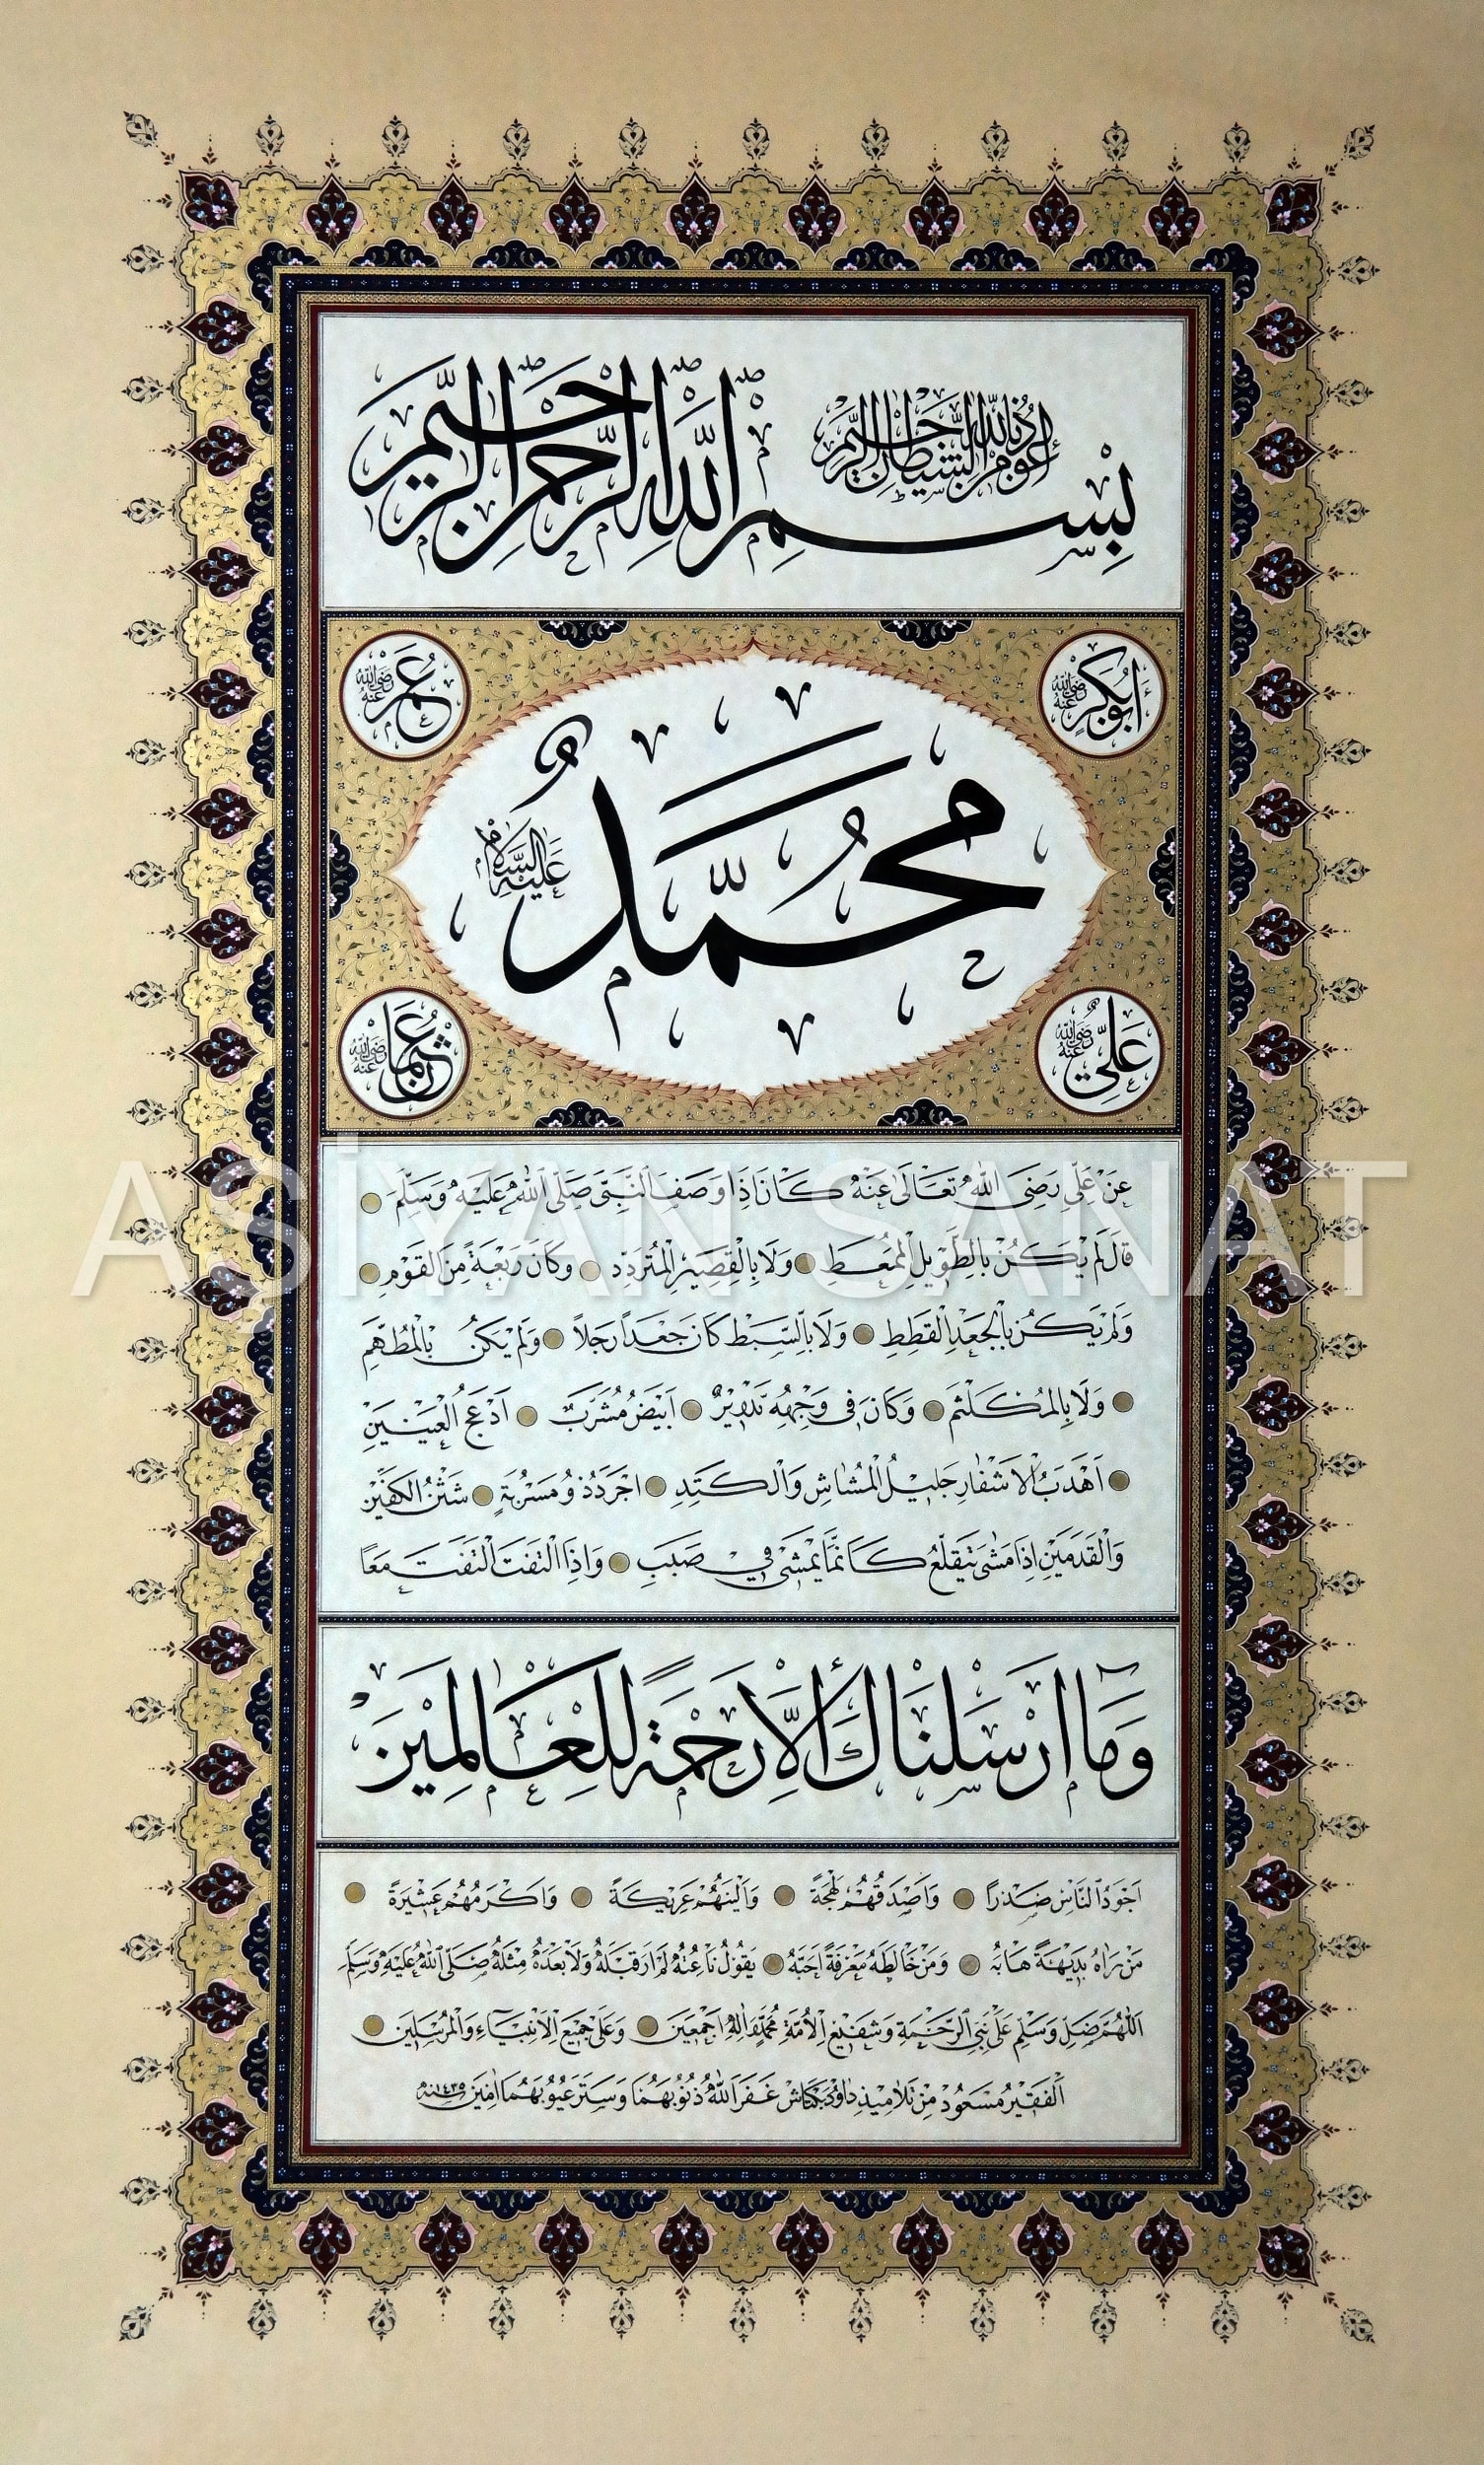 اعوذ بالله من الشيطان الرجيم
بسم الله الرحمن الرحيم
ابو بكر رضي الله عنه
عمر رضي الله عنه
محمد
عليه السلام
علي رضي الله عنه
عثمان رضي الله عنه
عن علي رضي الله تعالى عنه كان اذا وصف النبي صلى الله عليه وسلم
قال لم يكن بالطويل الممغط ولا بالقصير المتردد وكان ربعة من القوم
ولم يكن بالجعد القطط ولا بالسبط كان جعدا رجلا ولم يكن بالمطهم
ولا بالمكلثم وكان في وجهه تدوير ابيض مشرب ادعج العينين
اهدب الاشفار جليل المشاش والكتد اجرد ذو مسربة شثن الكفين
والقدمين اذا مشى تيقلع كانما يمشي في صبب واذا التفت التفت معا
وما ارسلناك الا رحمة للعالمين
اجود الناس صدرا واصدقهم لهجة والينهم عريكة واكرمهم عشيرة
من رآه بديهة هابه ومن خالطه معرفة احبه يقول ناعته لم ار قبله ولا بعده مثله صلى الله عليه وسلم
اللهم صل وسلم على نبي الرحمة وشفيع الامة محمد واله اجمعين وعلى جميع الانبياء والمرسلين
الفقير مسعود من تلاميذ داود بكتاش غفر الله ذنوبهما وستر عيوبهما امين سنه ١٤٣٥
ASİYAN SANAT